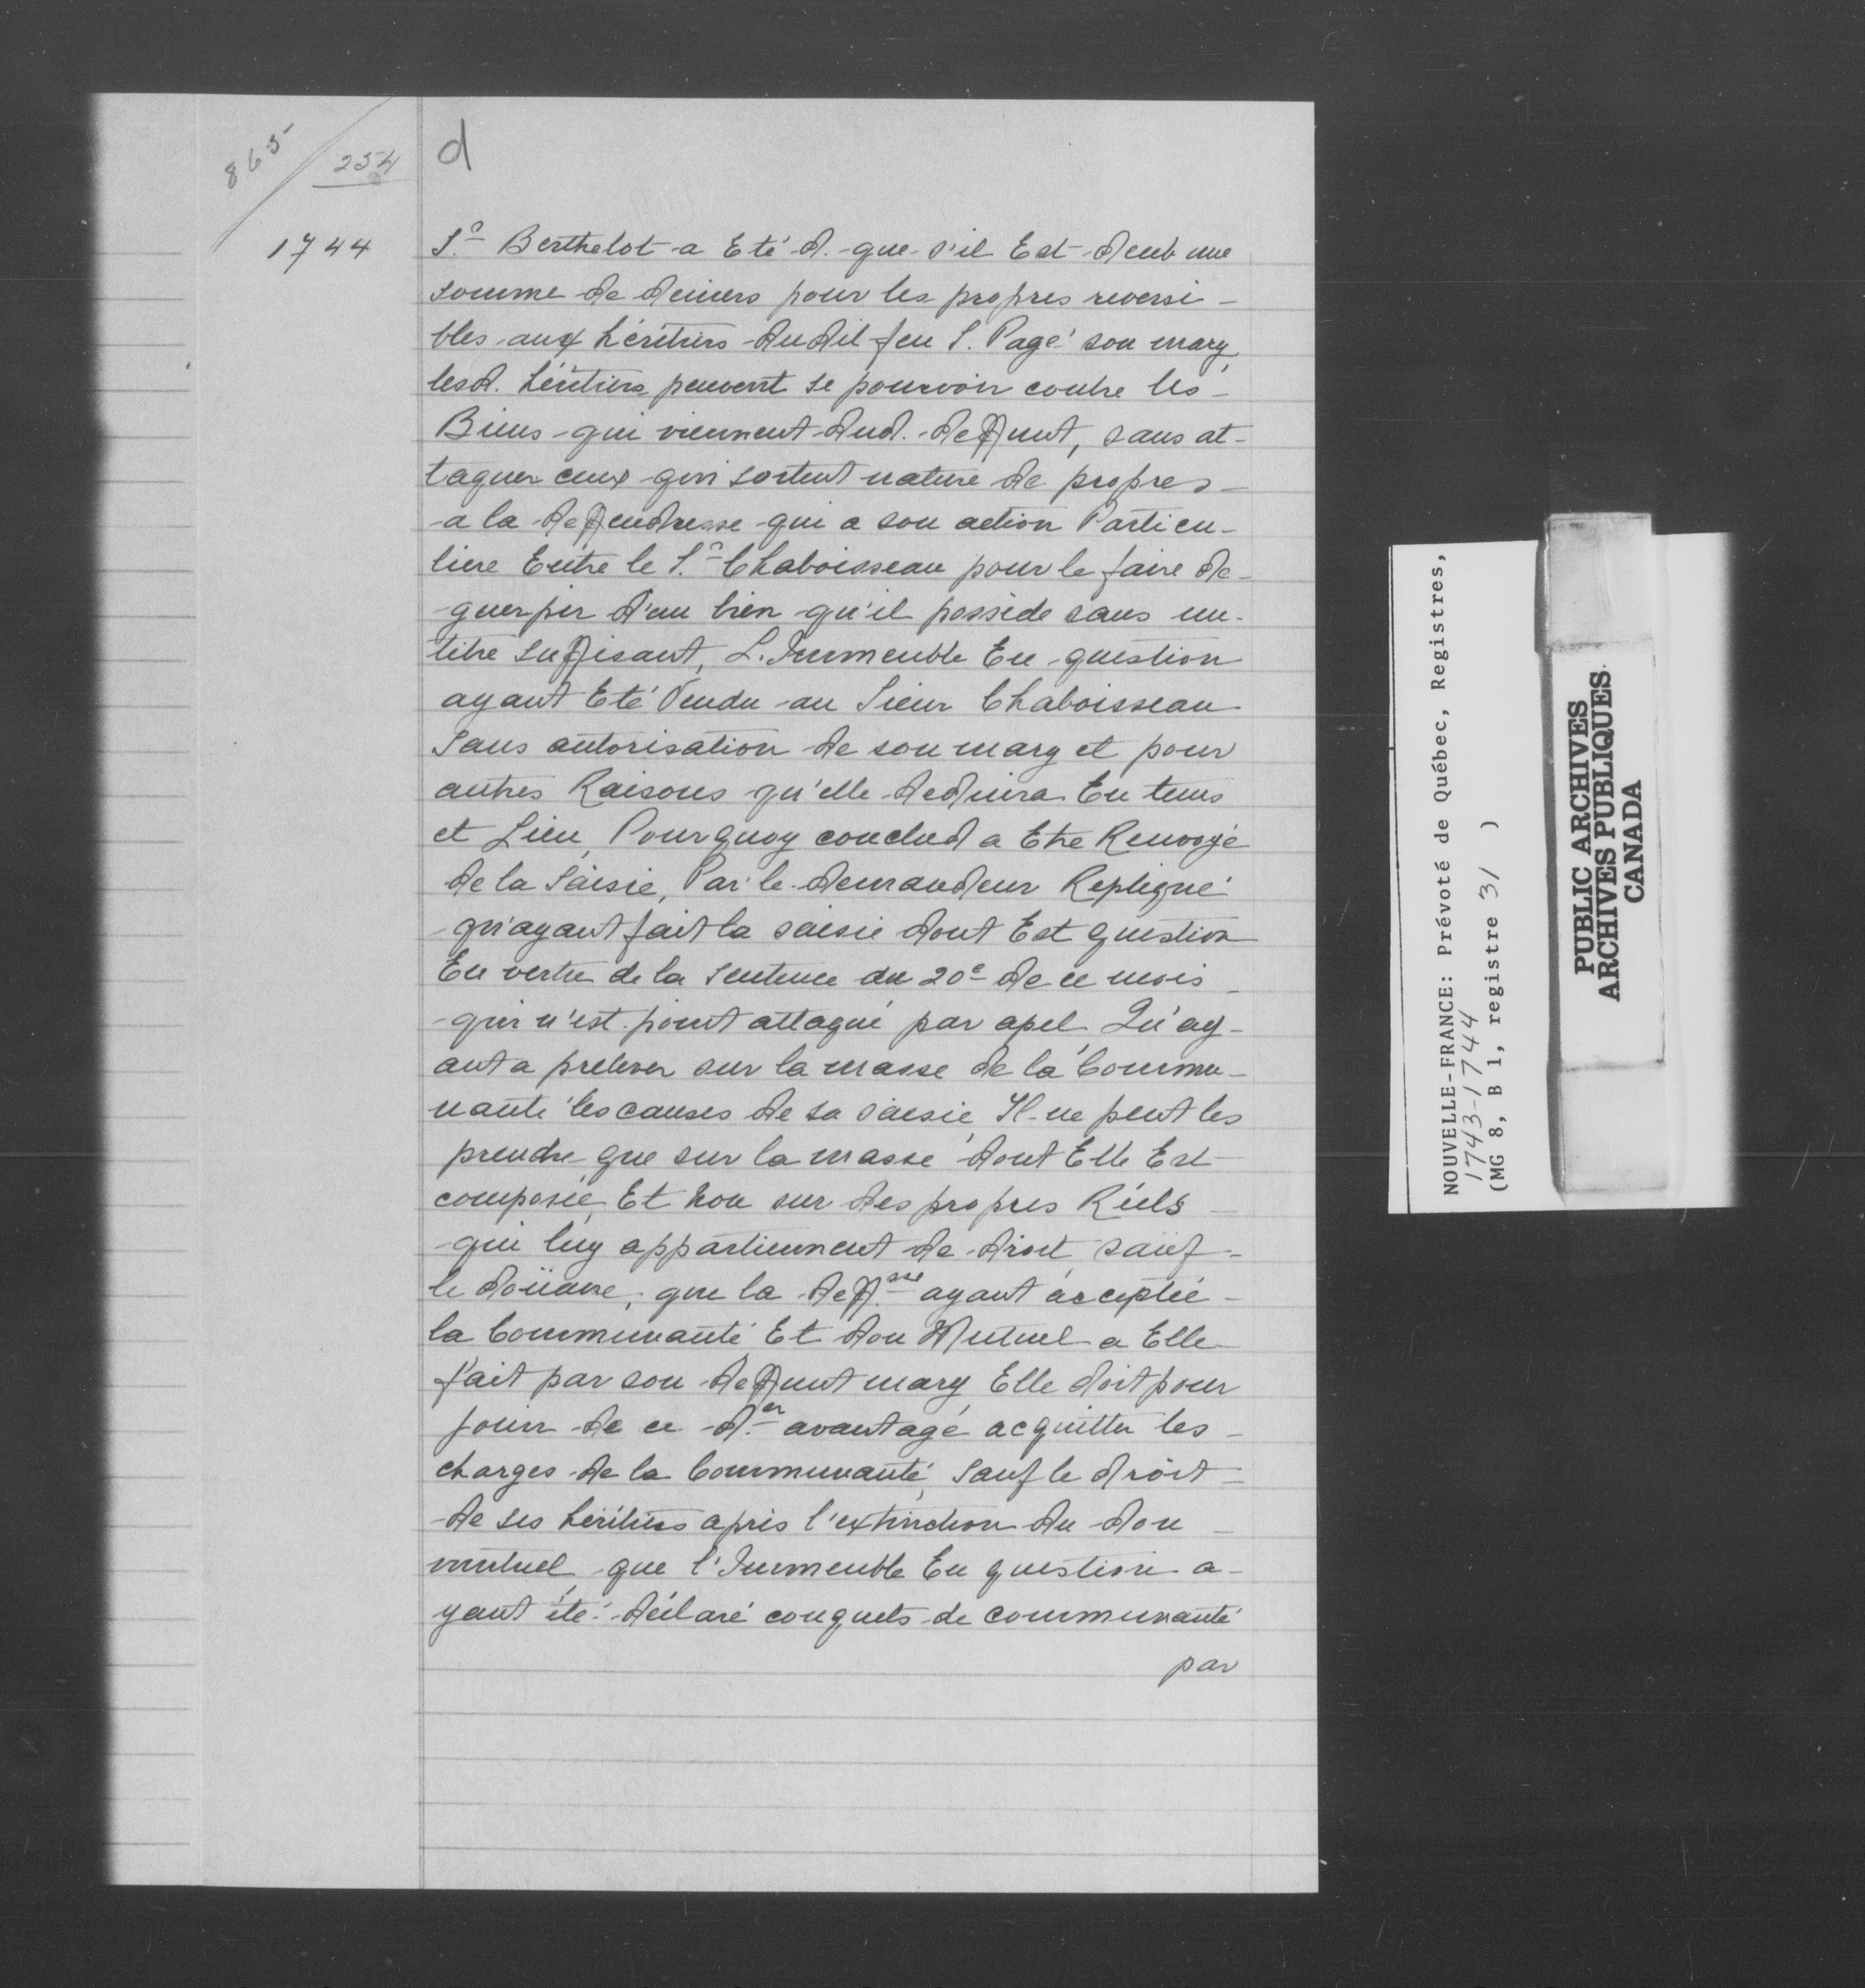 865 / 254
d
1744
S.r Berthelot a Eté d. que s'il Est deub une
somme de deniers pour les propres reversi-
bles aux héritiers dudit feu S. Pagé son mary,
lesd. héritiers peuvent se pourvoir contre les
Biens qui viennent dud. deffunt, sans at-
taquer ceux qui sortent nature de propres
a la deffendresse qui a son action Particu-
liere Entre le S.r Chaboisseau pour le faire de-
guerpir d'un bien qu'il possède sans un
titre suffisant, L. Immeuble En question
ayant Eté Vendu au Sieur Chaboisseau
Sans autorisation de son mary et pour
autres Raisons qu'elle deduira En tems
et Lieu, Pourquoy conclud a Etre Renvoyé
de la Saisie, Par le demandeur Repliqué
qu'ayant fait la saisie dont Est question
En vertu de la sentence du 20e de ce mois
qui n'est point attaqué par apel, Qu'ay-
ant a prelever sur la masse de la Commu-
nauté les causes de sa saisie, Il ne peut les
prendre que sur la masse dont Elle Est
composée, Et non sur des propres Réels
qui luy appartiennent de droit, sauf
le doüaire, que la deff.sse ayant acceptée
la Communauté Et don Mutuel a Elle
fait par son deffunt mary, Elle doit pour
jouir de ce d.er avantage acquitter les
charges de la Communauté, sauf le droit
de ses héritiers après l'extinction du don
mutuel que l'Immeuble En question a-
yant été déclaré conquets de communauté
par
NOUVELLE-FRANCE: Prévoté de Québec, Registres,
1743-1744
(MG 8, B 1, registre 31 )
PUBLIC ARCHIVES
ARCHIVES PUBLIQUES
CANADA